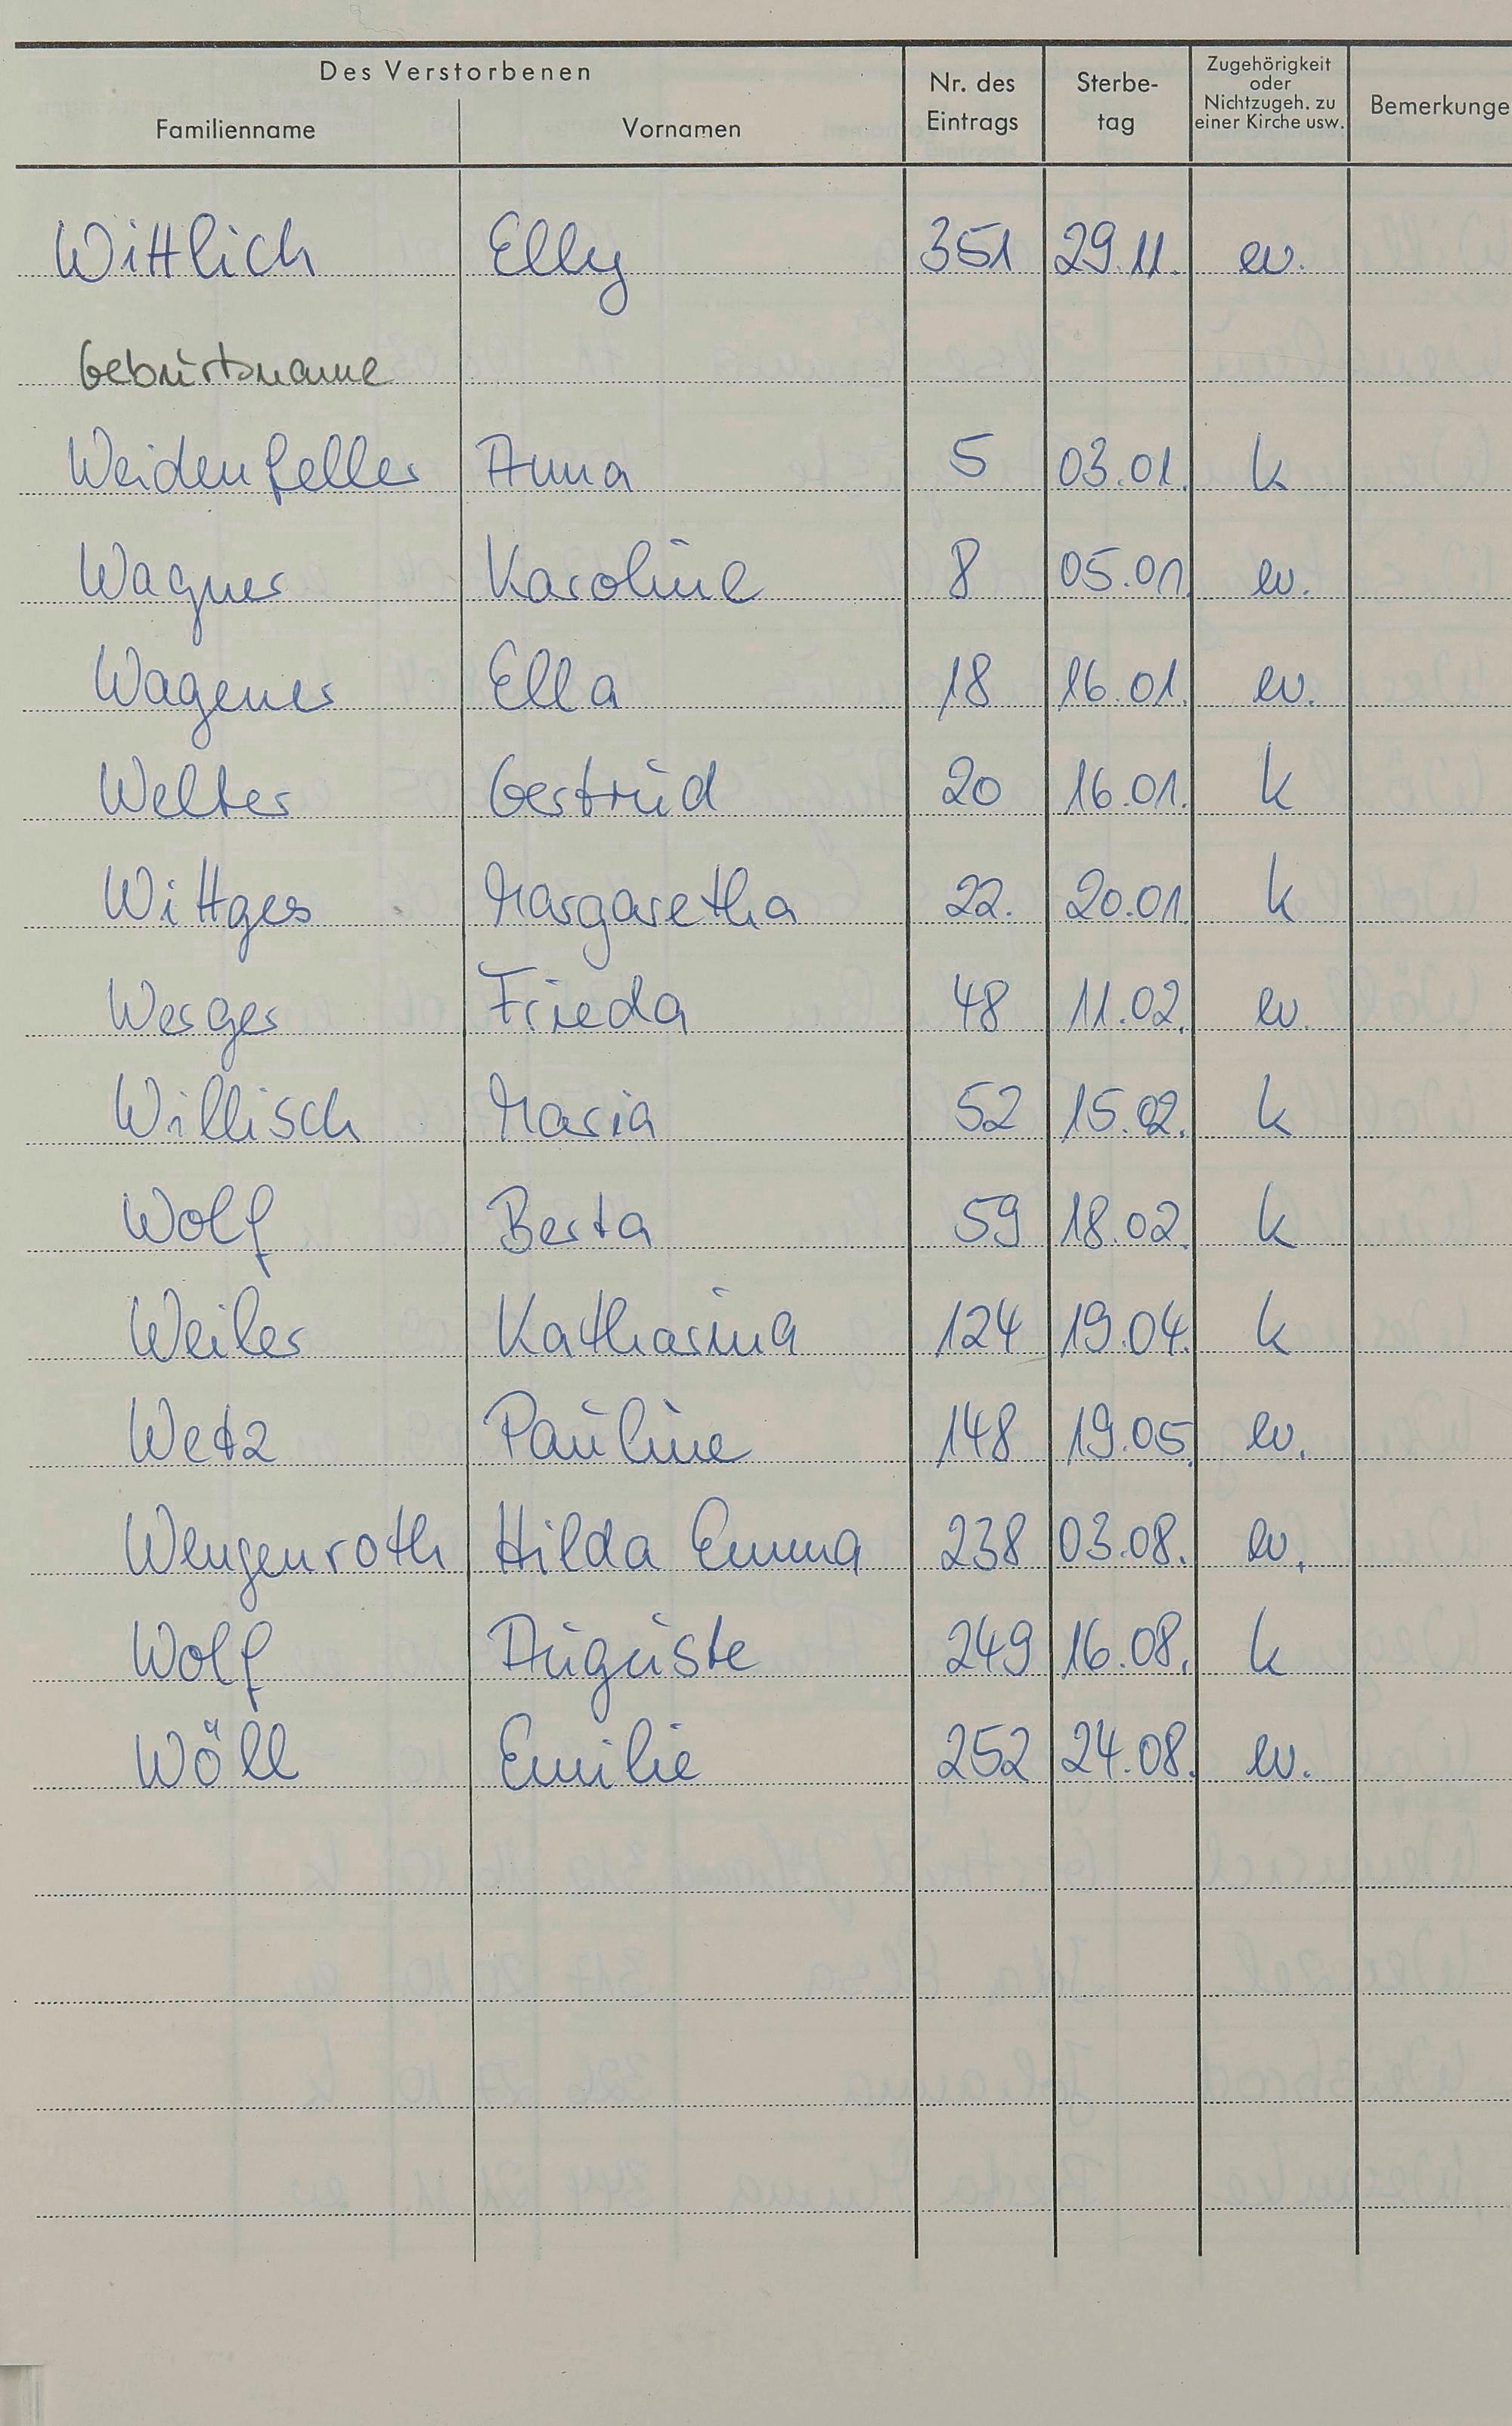 Des Verstorbenen
Familienname Vornamen Nr. des Eintrags Sterbe-tag Zugehörigkeit oder Nichtzugeh. zu einer Kirche usw. Bemerkunge
Wittlich Elly 351 29.11. ev.
Geburtsname
Weidenfeller Anna 5 03.01. k
Wagner Karoline 8 05.01. ev.
Wagener Ella 18 16.01. ev.
Welter Gertrud 20 16.01. k
Wittges Margaretha 22. 20.01. k
Werger Frieda 48 11.02. ev.
Willisch Maria 52 15.02. k
Wolf Berta 59 18.02. k
Weiler Katharina 124 19.04. k
Wetz Pauline 148 19.05. ev.
Wengenroth Hilda Emma 238 03.08. ev.
Wolf Auguste 249 16.08. k
Wöll Emilie 252 24.08. ev.